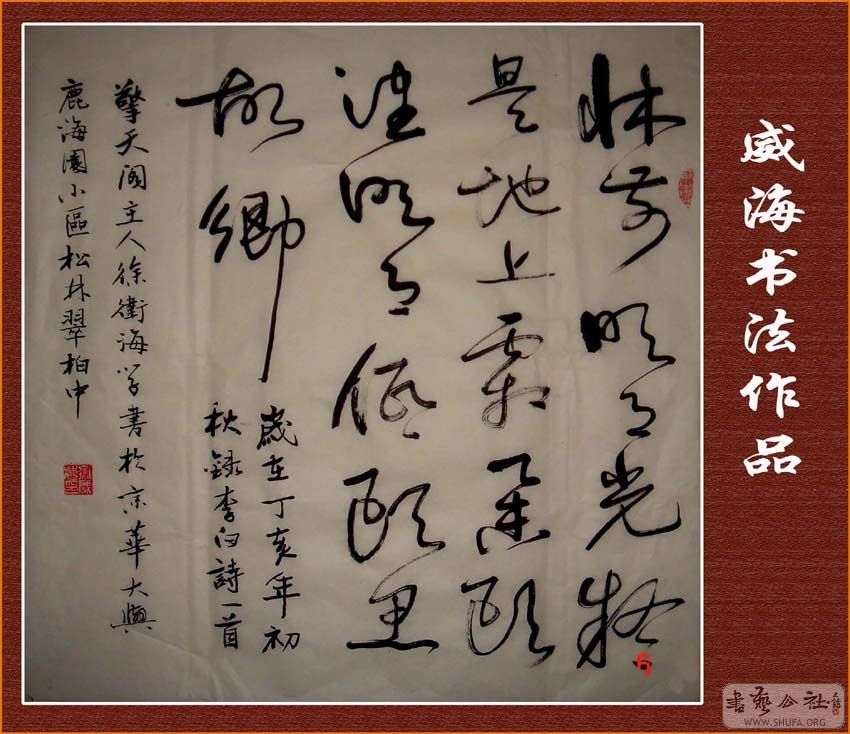 威海书法作品
牀前明月光疑
是地上霜舉頭
望明月低頭思
故鄉
歲在丁亥年初
秋錄李白詩一首
擎天阁主人徐衛海学書於京華大興
鹿海園小區松林翠柏中
書藝公社
WWW.SHUFA.ORG